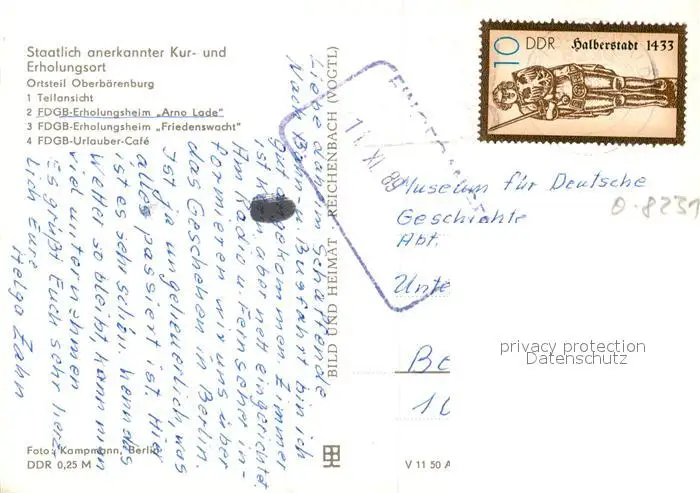 Staatlich anerkannter Kur- und
Erholungsort
Ortsteil Oberbärenburg
1 Teilansicht
2 FDGB-Erholungsheim „Arno Lade"
3 FDGB-Erholungsheim „Friedenswacht"
4 FDGB-Urlauber-Café
Liebe daheim Schaffende
Nach Bahn u. Busfahrt bin ich
gut angekommen. Zimmer
ist aber nett eingerichtet.
Am Radio u. Fernseher in-
formieren wir uns über
das Geschehen in Berlin.
Ist ja ungeheuerlich, was
alles passiert ist. Hier
ist es sehr schön. Wenn das
Wetter so bleibt, kann man
viel unternehmen
Es grüßt Euch sehr herz-
lich Eure
Helga Zahn
Foto: Kampmann, Berlin
DDR 0,25 M
BILD UND HEIMAT · REICHENBACH (VOGTL)
V 11 50 A
EINGEGANGEN
11. XI. 89
10 DDR Halberstadt 1433
Museum für Deutsche
Geschichte
Abt.
Unte
Be
10
0-8231
privacy protection
Datenschutz